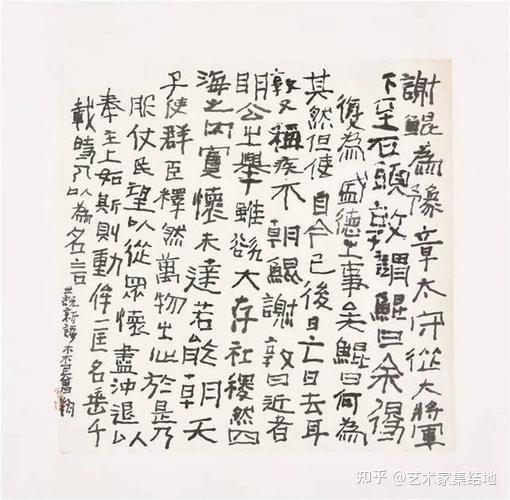 謝鯤為豫章太守從大將軍
下至石頭敦謂鯤曰余得
復為盛德之事矣鯤曰何為
其然但使自今已後日亡日去耳
敦又稱疾不朝鯤謝敦曰近者
明公之舉雖欲大存社稷然四
海之內實懷未達若能朝天
子使群臣釋然萬物之心於是乃
服仗民望以從眾懷盡沖退以
奉主上如斯則動侔一匡名垂千
載時人以為名言
世說新語
知乎 @艺术家集结地